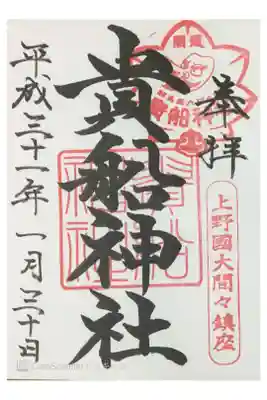 奉拝
上野國大間々鎮座
開運
貴船神社
平成三十一年一月三十日
CamScanner